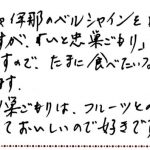 伊那のベルシャインを
すが、
と忠巣ごもり」
すので、たまに食べたい
ます。
巣ごもりは、フルーツとの
ておいしいので好きです